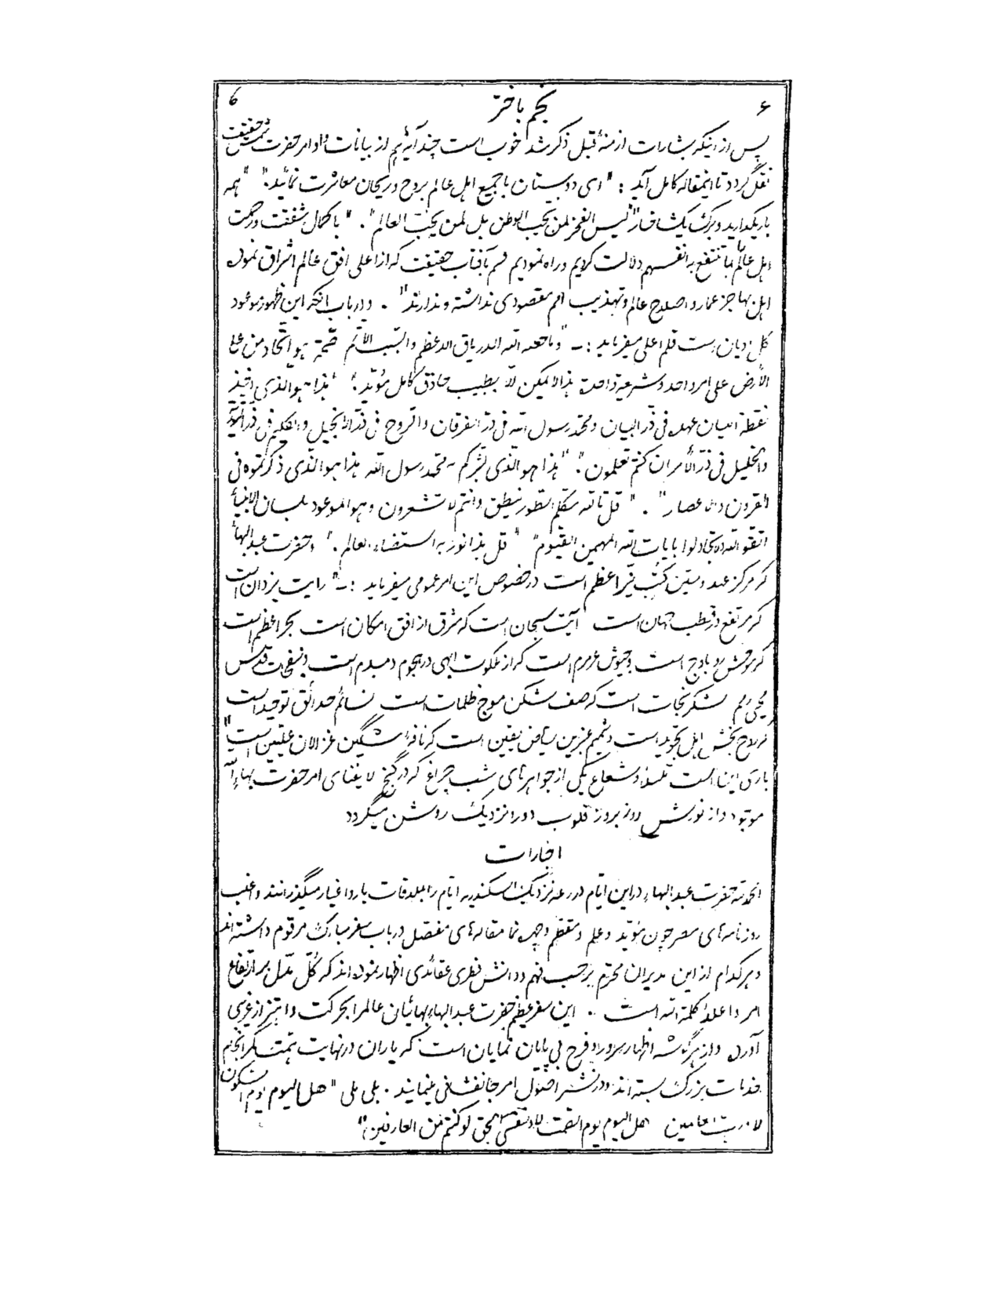 ۶ نجم باختر 6
پس از اینکه بشارات ازمنهٔ قبل ذکر شد خوب است چند آیه هم از بیانات و اوامر حضرت شمس حقیقت
نقل گردد تا اینمقاله کامل آید : "ای دوستان با جمیع اهل عالم بروح و ریحان معاشرت نمائید." "همه
بار یکدارید و برگ یک شاخسار" لیس الفخر لمن یحب الوطن بل لمن یحب العالم". "با کمال شفقت و رحمت
اهل عالم بما تنتفع به انفسهم دلالت کردیم و راه نمودیم قسم بآفتاب حقیقت که از اعلی افق عالم اشراق نموده
اهل بها جز عمار و اصلاح عالم و تهذیب امم مقصودی نداشته و ندارند". و در باب اینکه این ظهور موعود
کل ادیان است قلم اعلی میفرماید :ــ "و ما جعله الله الدریاق الاعظم و السبب الاتم لصحته هو اتحاد من علی
الأرض علی امر واحد و شریعة واحدة هذا لا یمکن الا بطبیب حاذق کامل مؤید". "هذا هو الذی اخذ
نقطة البیان عهده فی ذر البیان و محمد رسول الله فی ذر الفرقان و الروح فی ذر الانجیل و الکلیم فی ذر التوریة
و الخلیل فی ذر الأمر ان کنتم تعلمون". "هذا هو الذی بشرکم به محمد رسول الله هذا هو الذی ذکرتموه فی
القرون و الاعصار". "قل تالله مکلم الطور ینطق و انتم لا تشعرون و هو الموعود بلسان الانبیاء
اتقوا الله و لا تجادلوا بآیات الله المهیمن القیوم" "قل هذا نور به استضاء العالم". و حضرت عبدالبهاء
که مرکز عهد و مبین کتب نیر اعظم است در خصوص این امر عمومی میفرماید :ــ "رایت یزدان است
که مرتفع در قطب جهان است آیت سبحان است که مشرق از افق امکان است بحر اعظم است
که موجش رو باوج است و جیوش عرمرم است که از ملکوت ابهی در هجوم دمبدم است و نفحات قدس
محیی رمم لشکر نجات است که صف شکن موج ظلمات است نسائم حدائق توحید است
که روح بخش اهل تجرید است و شمیم عنبرین ریاض یقین است که نافهٔ مشگین غزالان علیین است"
باری این است تلئلؤ و شعاع یکی از جواهرهای شب چراغ که در گنج لا یفنای امر حضرت بهاءالله
موجود و از نورش روز بروز قلوب دور و نزدیک روشن میگردد
اخبارات
الحمدلله حضرت عبدالبهاء در این ایام در رمله نزدیک اسکندریه ایام را بملاقات یار و اغیار میگذرانند و اغلب
روزنامه‌های مصر چون مؤید و علم و مقطم و چهره‌نما مقاله‌های مفصل در باب سفر مبارک مرقوم داشته‌اند
و هر کدام از این مدیران محترم بر حسب فهم و دانش فطری عقائدی اظهار نموده‌اند که کل مدل بر ارتفاع
امر و اعلاء کلمة الله است . این سفر عظیم حضرت عبدالبهاء بهائیان عالم را بحرکت و اهتزاز غریبی
آورده و از هر گوشه اظهار سرور و فرح بی پایان نمایان است که یاران در نهایت همت کمر بانجام
خدمات بزرگ بسته‌اند و در نشر اصول امر جانفشانی مینمایند . بلی بلی "هل الیوم یوم السکون
لا و رب العالمین هل الیوم یوم الصمت لا و نفسی الحق لو کنتم من العارفین"